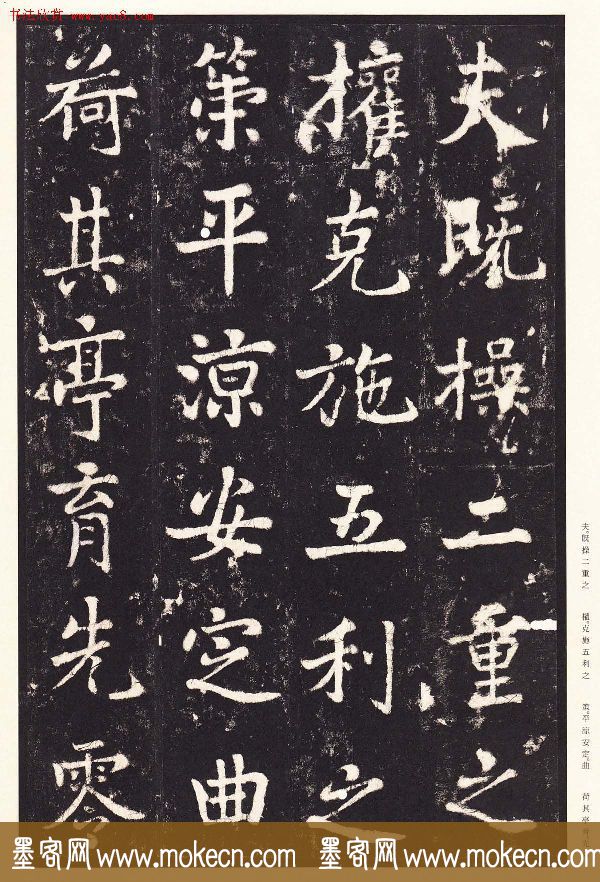 书法欣赏 www.yac8.com
夫既操二重之
權克施五利之
策平涼安定曲
荷其亭育先零
夫既操二重之 權克施五利之 策平涼安定曲 荷其亭育
墨客网 www.mokecn.com 墨客网 www.mokecn.com